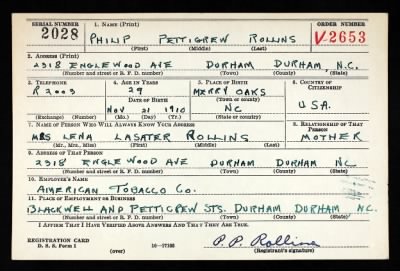 SERIAL NUMBER 1. NAME (Print) ORDER NUMBER
2028 PHILIP PETTIGREW ROLLINS V2653
(First) (Middle) (Last)
2. ADDRESS (Print)
2318 ENGLEWOOD AVE DURHAM DURHAM, N.C.
(Number and street or R. F. D. number) (Town) (County) (State)
3. TELEPHONE 4. AGE IN YEARS 5. PLACE OF BIRTH 6. COUNTRY OF CITIZENSHIP
R2003 29 MERRY OAKS
DATE OF BIRTH (Town or county)
NOV 21 1910 NC USA.
(Exchange) (No.) (Mo.) (Day) (Yr.) (State or country)
7. NAME OF PERSON WHO WILL ALWAYS KNOW YOUR ADDRESS 8. RELATIONSHIP OF THAT PERSON
MRS LENA LASATER ROLLINS MOTHER
(Mr., Mrs., Miss) (First) (Middle) (Last)
9. ADDRESS OF THAT PERSON
2318 ENGLEWOOD AVE DURHAM DURHAM NC
(Number and street or R. F. D. number) (Town) (County) (State)
10. EMPLOYER'S NAME
AMERICAN TOBACCO CO.
11. PLACE OF EMPLOYMENT OR BUSINESS
BLACKWELL AND PETTIGREW STS. DURHAM DURHAM NC.
(Number and street or R. F. D. number) (Town) (County) (State)
I AFFIRM THAT I HAVE VERIFIED ABOVE ANSWERS AND THAT THEY ARE TRUE.
REGISTRATION CARD
D. S. S. Form 1 (over) 16—17105 P. P. Rollins
(Registrant's signature)